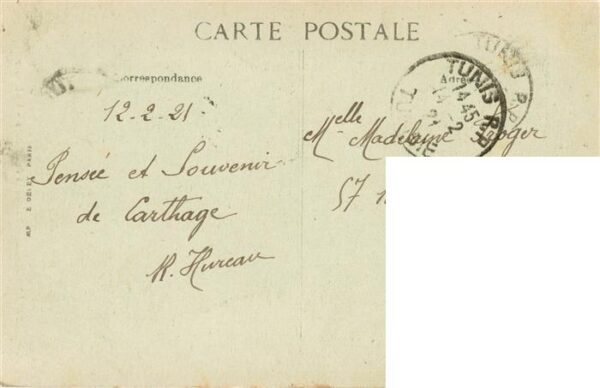 CARTE POSTALE
Correspondance
Adresse
TUNIS R.P
12-2-21
Pensée et Souvenir
de Carthage
M. Hureau
Melle Madeleine Roger
57